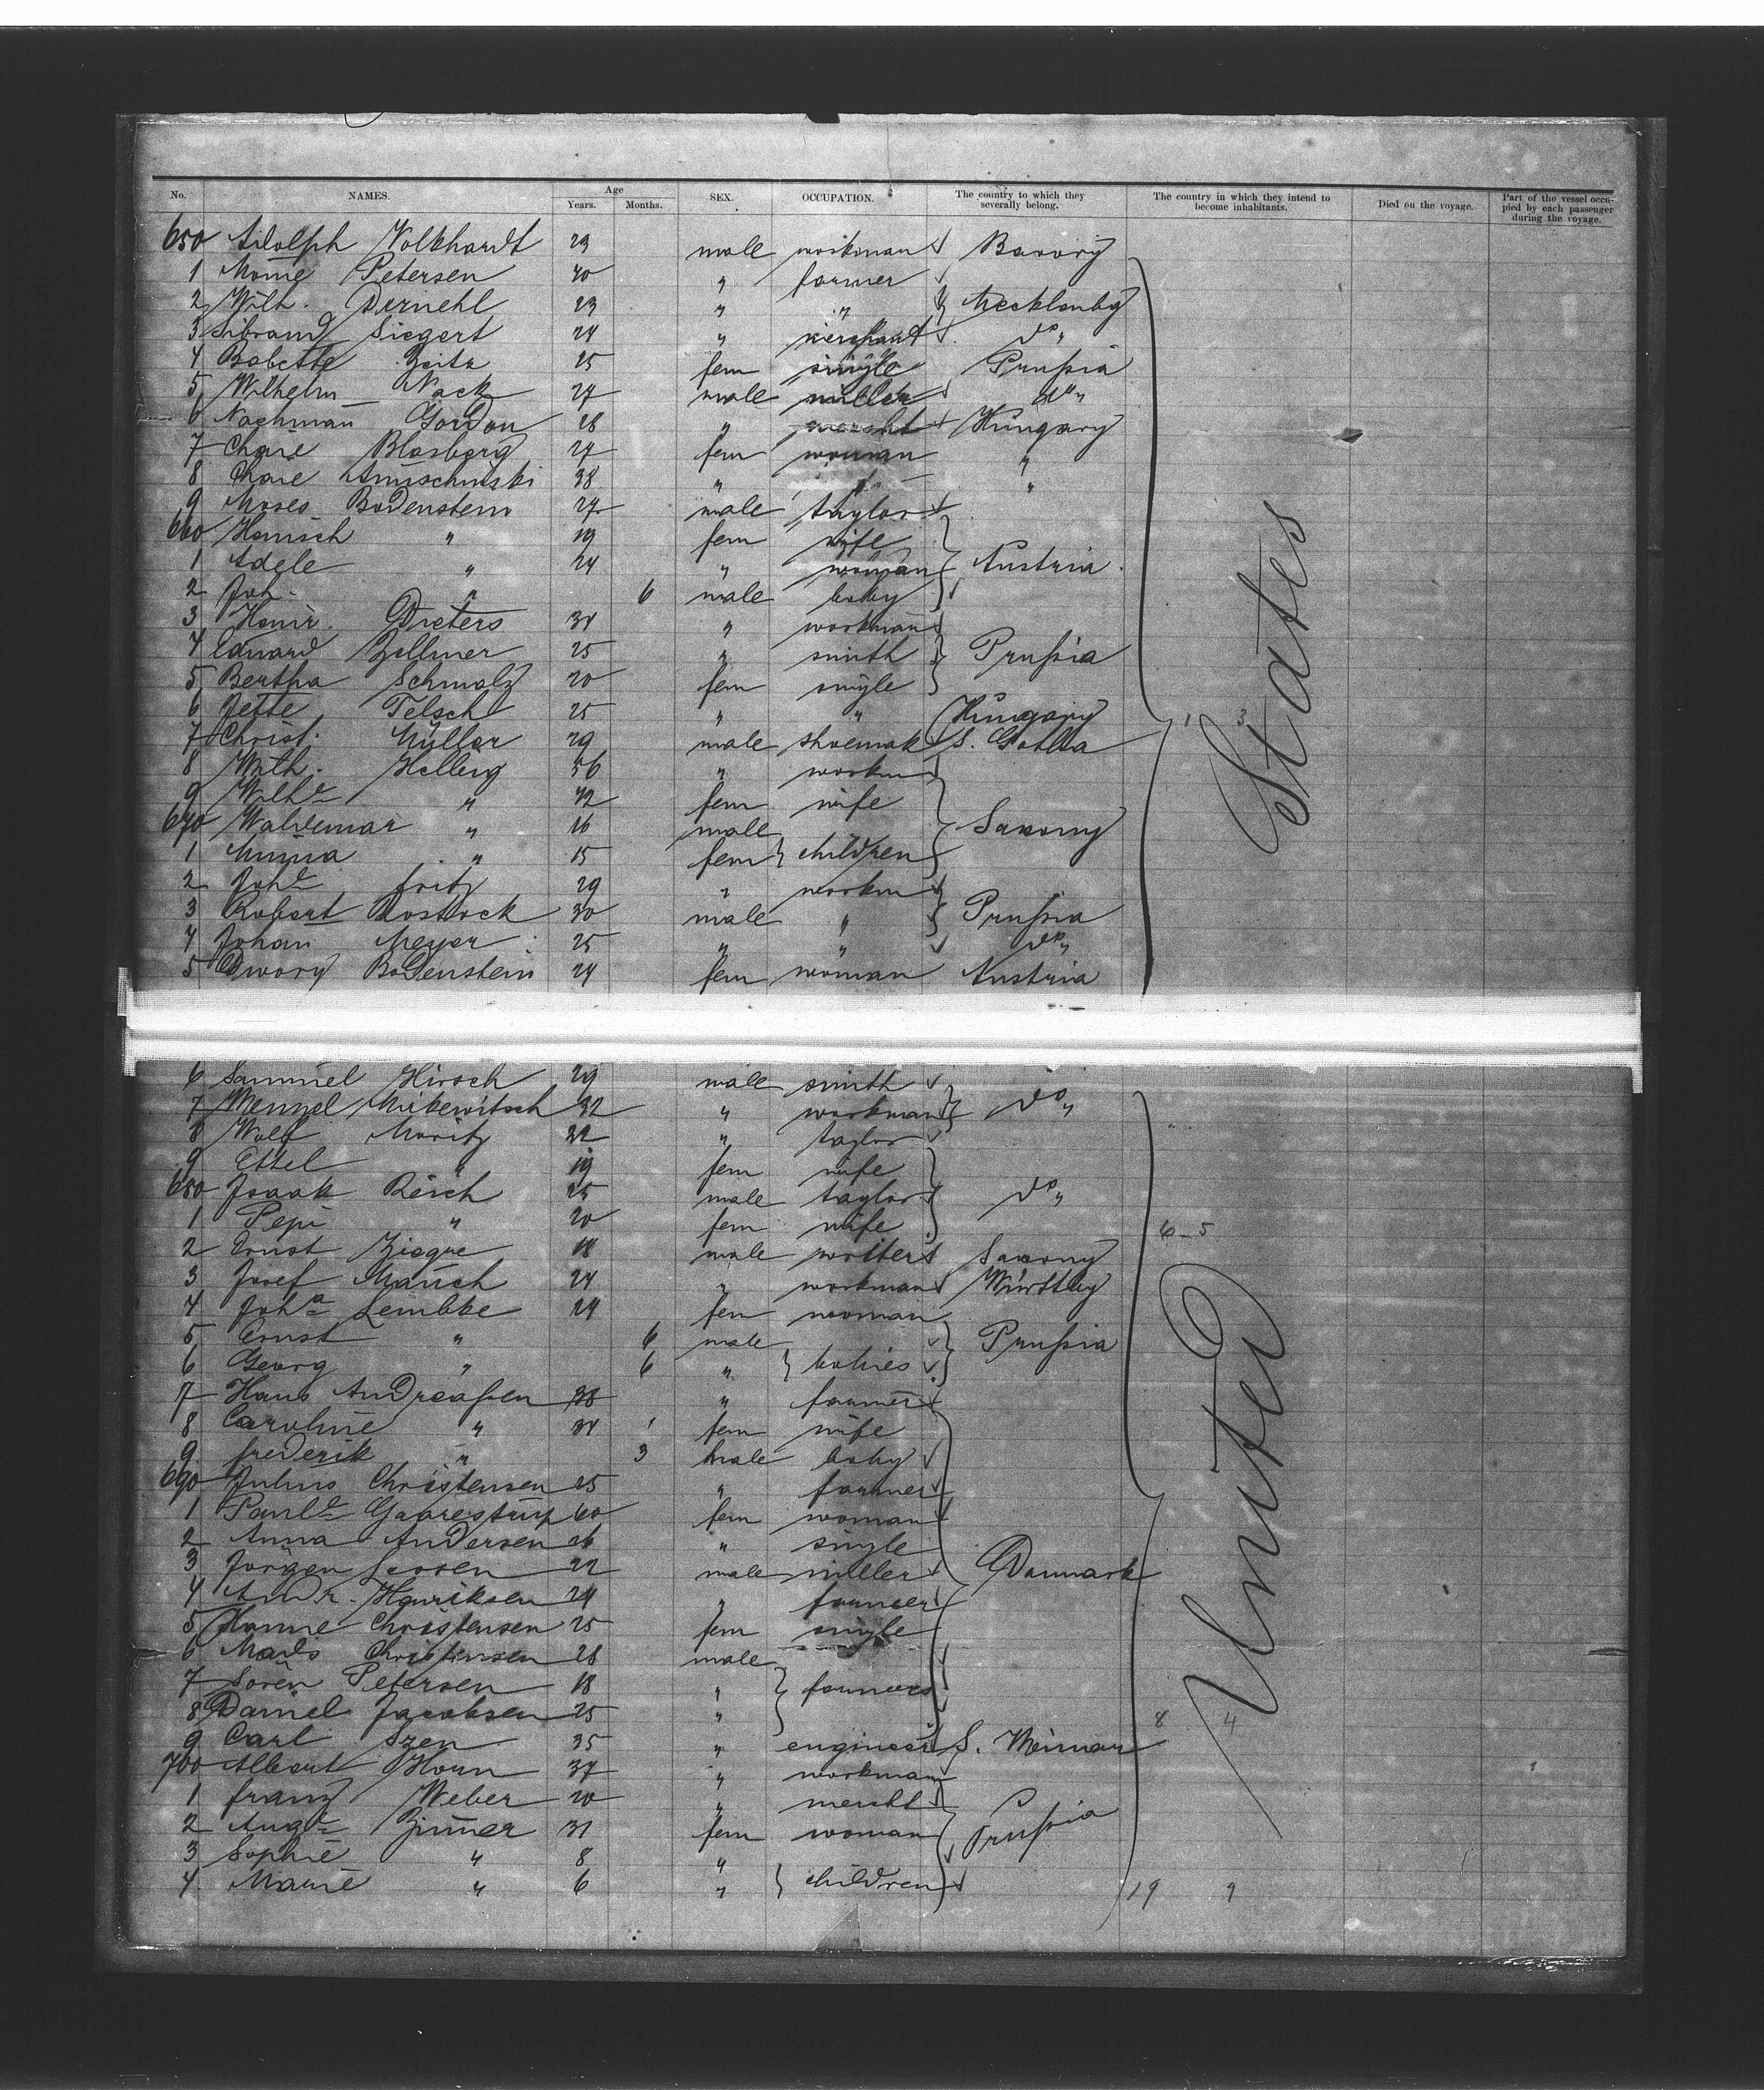 No. NAMES. Age Years. Months. SEX. OCCUPATION. The country to which they severally belong. The country in which they intend to become inhabitants. Died on the voyage. Part of the vessel occupied by each passenger during the voyage.
650 Adolph Volkhardt 23 male workman Bavory
1 Mome Petersen 40 " farmer
2 Wilh. Dernehl 23 " " Mecklenbg
3 Sibrand Siegert 24 " merchant do "
4 Babette Zeitz 25 fem single Prußia
5 Wilhelm Nack 27 male miller do "
6 Nachman Gordon 28 " mercht Hungary
7 Chaie Blasberg 27 fem woman "
8 Chaie 38 " " "
9 Moses Bodenstein 27 male taylor
660 Hanisch " 19 fem wife
1 Adele " 24 " woman Austria.
2 Joh. " 6 male baby
3 Heinr. Dieters 34 " workman
4 Eduard Zellmer 25 " smith Prußia
5 Bertha Schmalz 20 fem single
6 Jette Telsch 25 " " Hungary
7 Christ. Müller 29 male shoemak S. Gotha
8 Wilh. Hellerg 56 " workm
9 Wilhe " 42 fem wife
670 Waldemar " 16 male Saxony
1 Minna " 15 fem children
2 Johe Fritz 29 " workm
3 Robert Rostock 30 male " Prußia
4 Johan Meyer 25 " " do "
5 Dwory Bodenstein 24 fem woman Austria
6 Samuel Hirsch 29 male smith
7 Menzel Mikewitsch 32 " workman do "
8 Wolf Moritz 22 " taylor
9 Ettel " 19 fem wife
680 Isaak Reich 25 male taylor do "
1 Pepi " 20 fem wife
2 Ernst Ziegue 18 male writer Saxony
3 Josef Mauch 24 " workman Württbg
4 Joha Lembke 24 fem woman
5 Ernst " 6 male Prußia
6 Georg " 6 " babies
7 Hans Andreaßen 38 " farmer
8 Caroline " 34 fem wife
9 Frederik " 3 male baby
690 Julius Christensen 25 " farmer
1 Paule Gaarestrup 60 fem woman
2 Anna Andersen 26 " single
3 Jörgen Jessen 22 male miller Danmark
4 Andr. Henriksen 24 " farmer
5 Hanne Christensen 25 fem single
6 Mads Christensen 28 male
7 Sören Petersen 18 " farmers
8 Daniel Jacobsen 25 "
9 Carl Szen 35 " engineer S. Weimar
700 Albert Horn 37 " workman
1 Franz Weber 20 " mercht
2 Auge Zimer 31 fem woman Prußia
3 Sophie " 8 "
4 Marie " 6 " children
United States
1 3
6-5
8 4
19 9